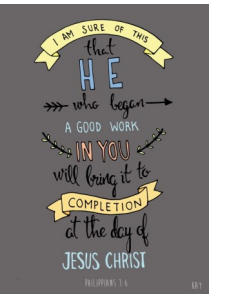 I AM SURE OF THIS
that
HE
who began
A GOOD WORK
IN YOU
will bring it to
COMPLETION
at the day of
JESUS CHRIST
PHILIPPIANS 1:6